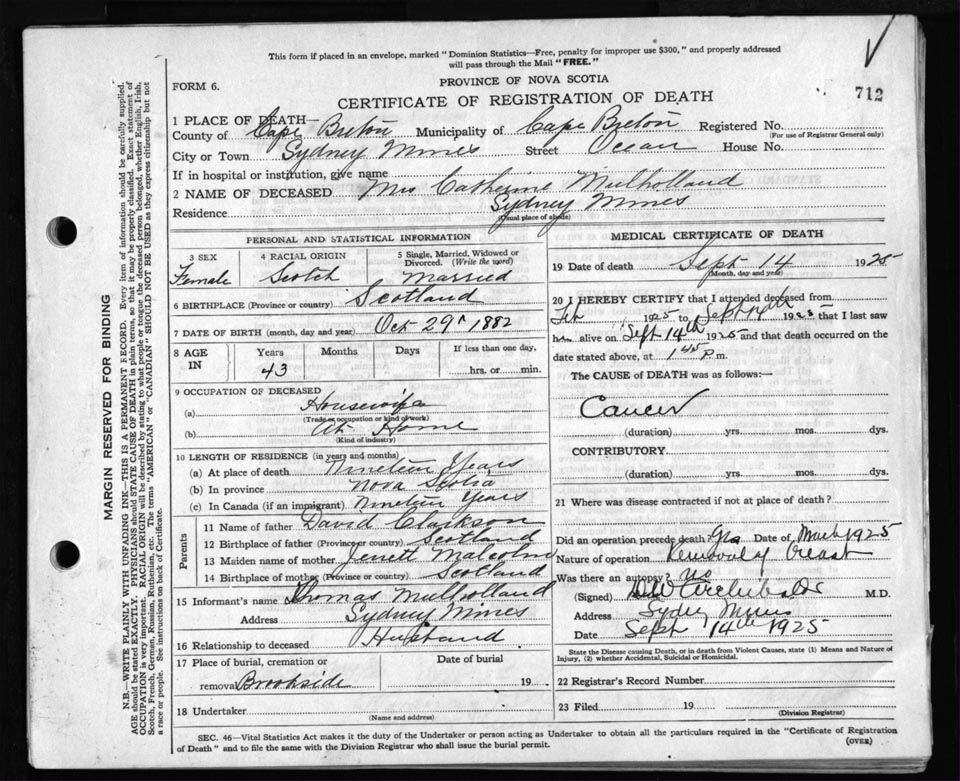 This form if placed in an envelope, marked "Dominion Statistics—Free, penalty for improper use $300," and properly addressed
will pass through the Mail "FREE."
FORM 6.
PROVINCE OF NOVA SCOTIA
712
CERTIFICATE OF REGISTRATION OF DEATH
1 PLACE OF DEATH—
County of Cape Breton Municipality of Cape Breton Registered No.
(For use of Registrar General only)
City or Town Sydney Mines Street Ocean House No.
If in hospital or institution, give name
2 NAME OF DECEASED Mrs Catherine Mulholland
Residence Sydney Mines
(Usual place of abode)
PERSONAL AND STATISTICAL INFORMATION
3 SEX 4 RACIAL ORIGIN 5 Single, Married, Widowed or
Divorced. (Write the word)
Female Scotch Married
6 BIRTHPLACE (Province or country) Scotland
7 DATE OF BIRTH (month, day and year) Oct 29 1882
8 AGE IN Years Months Days If less than one day,
43 hrs. or min.
9 OCCUPATION OF DECEASED
(a) Housewife
(Trade or occupation or kind of work)
(b) At Home
(Kind of industry)
10 LENGTH OF RESIDENCE (in years and months)
(a) At place of death Nineteen Years
(b) In province Nova Scotia
(c) In Canada (if an immigrant) Nineteen Years
Parents
11 Name of father David Clarkson
12 Birthplace of father (Province or country) Scotland
13 Maiden name of mother Jenett Malcolm
14 Birthplace of mother (Province or country) Scotland
15 Informant's name Thomas Mulholland
Address Sydney Mines
16 Relationship to deceased Husband
17 Place of burial, cremation or Date of burial
removal Brookside 19
18 Undertaker
(Name and address)
MEDICAL CERTIFICATE OF DEATH
19 Date of death Sept 14 1925
(Month, day and year)
20 I HEREBY CERTIFY that I attended deceased from
Feb 1925 to Sept 14th 1925, that I last saw
her alive on Sept 14th 1925 and that death occurred on the
date stated above, at 1 45 P. m.
The CAUSE of DEATH was as follows:—
Cancer
(duration) yrs. mos. dys.
CONTRIBUTORY
(duration) yrs. mos. dys.
21 Where was disease contracted if not at place of death?
Did an operation precede death? Yes Date of March 1925
Nature of operation Removal of breast
Was there an autopsy? no
(Signed) Archibald M.D.
Address Sydney Mines
Date Sept 14th 1925
State the Disease causing Death, or in death from Violent Causes, state (1) Means and Nature of
Injury, (2) whether Accidental, Suicidal or Homicidal.
22 Registrar's Record Number
23 Filed 19
(Division Registrar)
SEC. 46—Vital Statistics Act makes it the duty of the Undertaker or person acting as Undertaker to obtain all the particulars required in the "Certificate of Registration
of Death" and to file the same with the Division Registrar who shall issue the burial permit.
(OVER)
MARGIN RESERVED FOR BINDING
N.B.—WRITE PLAINLY WITH UNFADING INK—THIS IS A PERMANENT RECORD. Every item of information should be carefully supplied.
AGE should be stated EXACTLY. PHYSICIANS should STATE CAUSE OF DEATH in plain terms, so that it may be properly classified. Exact statement of
OCCUPATION is very important. RACIAL ORIGIN will be described by stating to what people or tongue the deceased person belonged, whether English, Irish,
Scotch, French, German, Russian, Ruthenian, etc. The terms "AMERICAN" or "CANADIAN" SHOULD NOT BE USED as they express citizenship but not
a race or people. See instructions on back of Certificate.